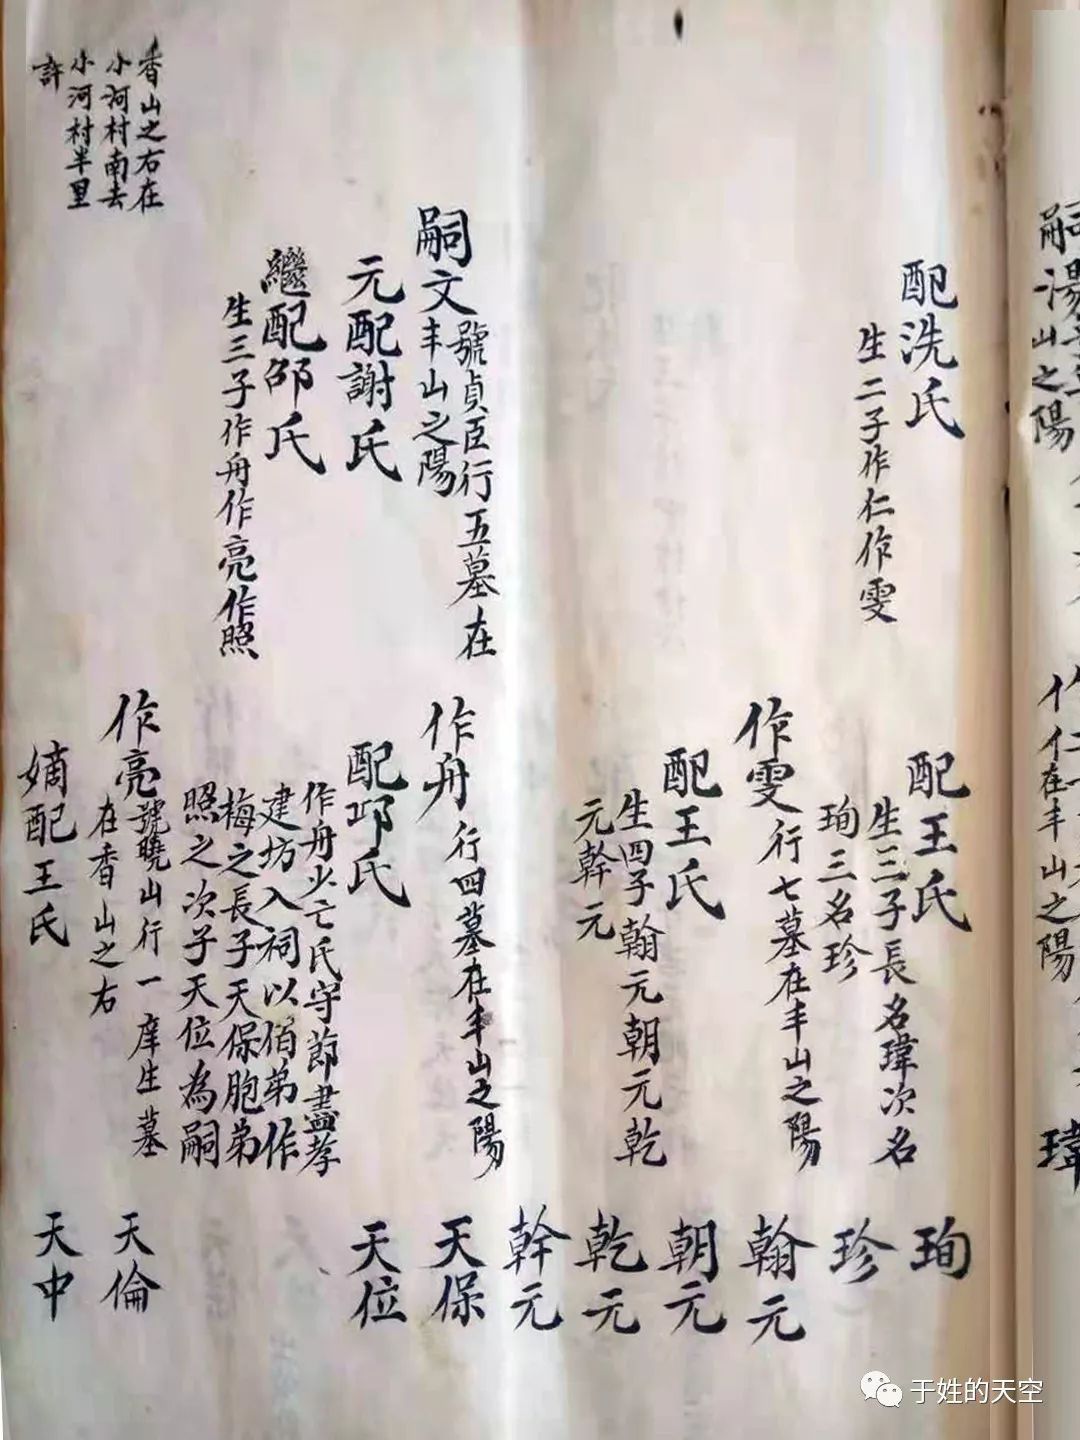 嗣湯
山之陽
作仁
在丰山之陽
瑋
配洗氏
生二子作仁作雯
配王氏
生三子長名瑋次名
珣三名珍
珣
珍
作雯行七墓在丰山之陽
配王氏
生四子翰元朝元乾
元幹元
翰元
朝元
乾元
幹元
嗣文號貞臣行五墓在
丰山之陽
元配謝氏
繼配邵氏
生三子作舟作亮作照
作舟行四墓在丰山之陽
配邛氏
作舟少亡氏守節盡孝
建坊入祠以佰弟作
梅之長子天保胞弟
照之次子天位為嗣
天保
天位
作亮號曉山行一庠生墓
在香山之右
嫡配王氏
天倫
天中
香山之右在
小河村南去
小河村半里
許
于姓的天空